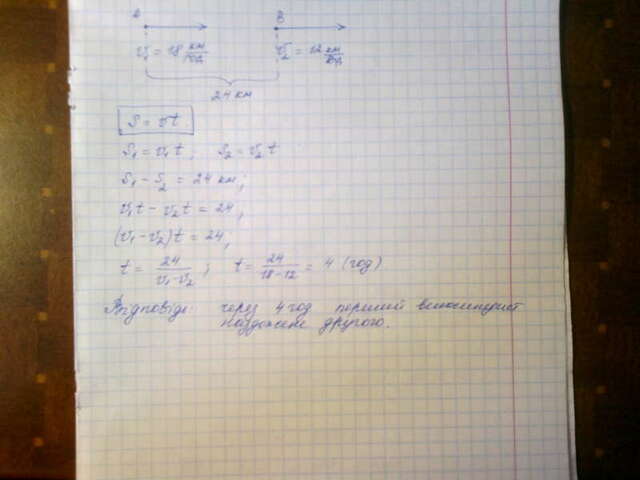 A B
v₁ = 18 км/год v₂ = 12 км/год
24 км
S = vt
S₁ = v₁t; S₂ = v₂t
S₁ − S₂ = 24 км;
v₁t − v₂t = 24;
(v₁ − v₂)t = 24;
t = 24/(v₁−v₂); t = 24/(18−12) = 4 (год)
Відповідь: через 4 год перший велосипедист
наздожене другого.